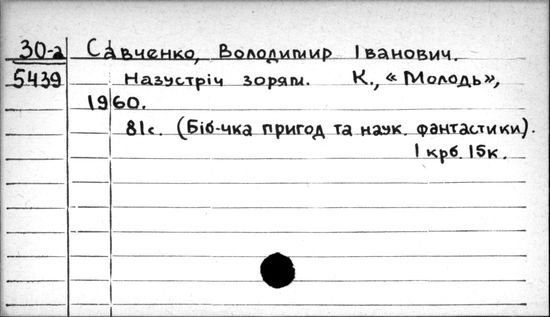 30-а Савченко, Володимир Іванович.
5439 Назустріч зорям. К., «Молодь»,
1960.
81с. (Біб-чка пригод та наук. фантастики).
1 крб. 15к.